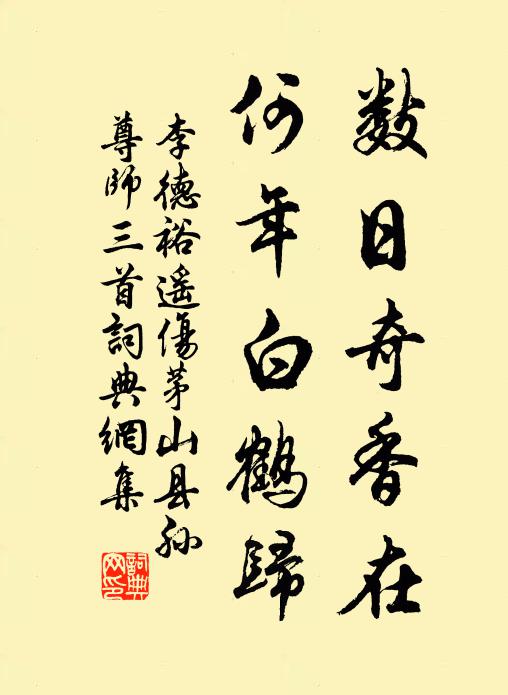 数日奇香在
何年白鹤歸
李德裕遥傷茅山县孙
尊師三首詞典網集
詞典網印